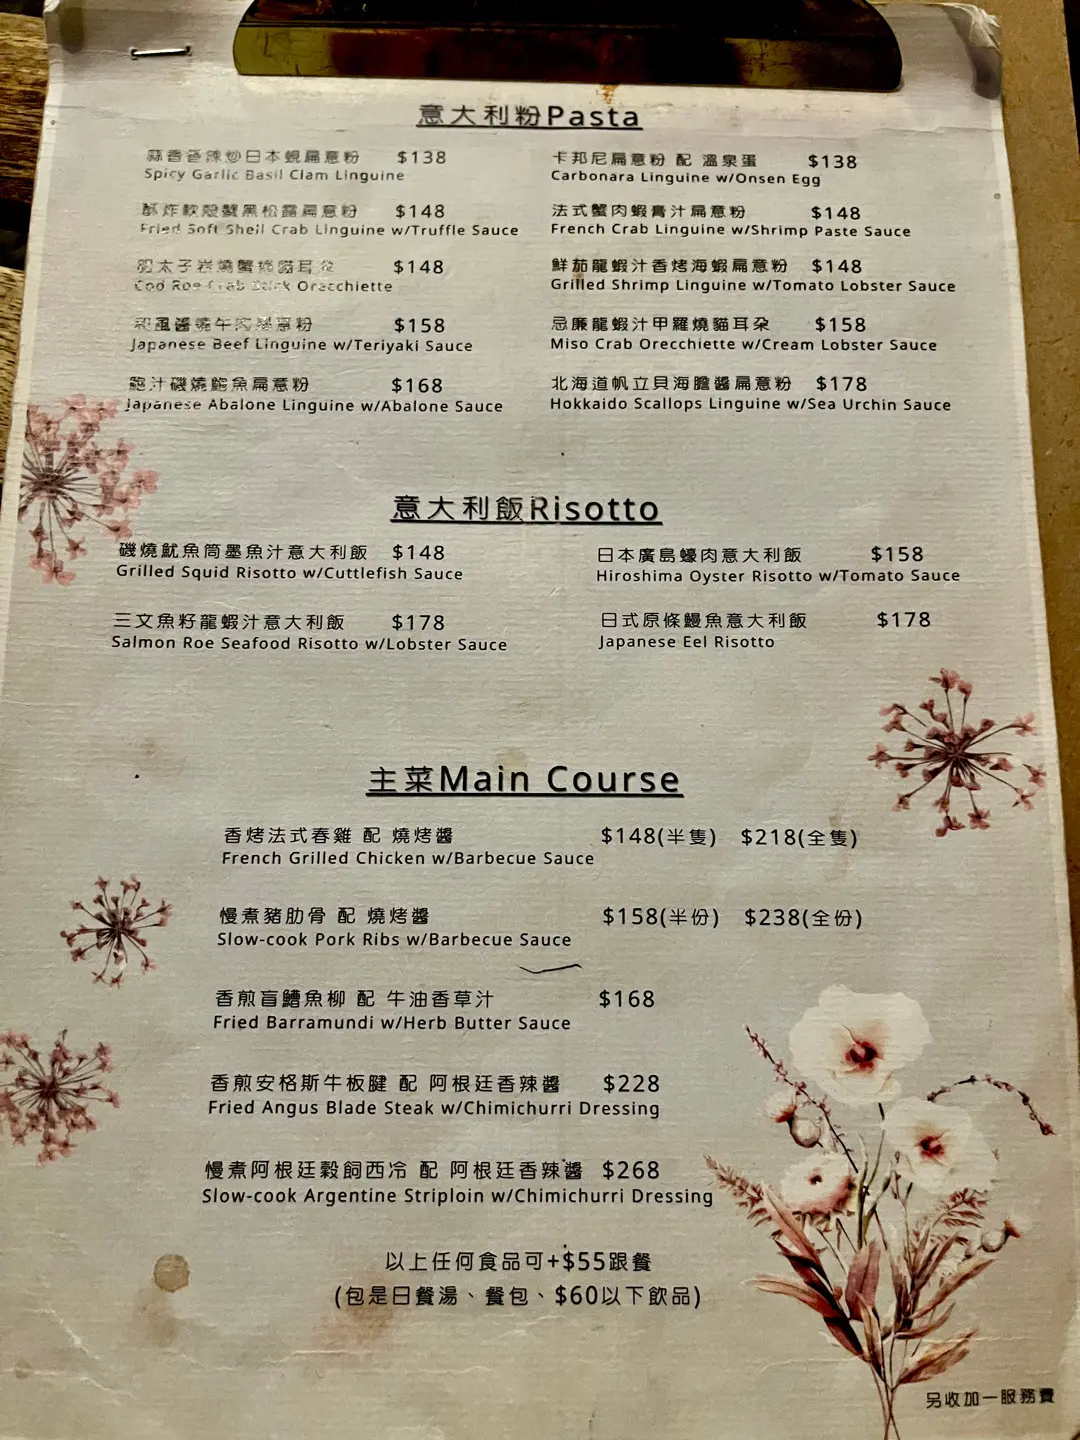 意大利粉Pasta
蒜香香辣炒日本蜆扁意粉 $138
Spicy Garlic Basil Clam Linguine
卡邦尼扁意粉 配 溫泉蛋 $138
Carbonara Linguine w/Onsen Egg
酥炸軟殼蟹黑松露扁意粉 $148
Fried Soft Shell Crab Linguine w/Truffle Sauce
法式蟹肉蝦膏汁扁意粉 $148
French Crab Linguine w/Shrimp Paste Sauce
明太子岩燒蟹柳貓耳朵 $148
Cod Roe Crab Stick Orecchiette
鮮茄龍蝦汁香烤海蝦扁意粉 $148
Grilled Shrimp Linguine w/Tomato Lobster Sauce
和風醬燒牛肉扁意粉 $158
Japanese Beef Linguine w/Teriyaki Sauce
忌廉龍蝦汁甲羅燒貓耳朵 $158
Miso Crab Orecchiette w/Cream Lobster Sauce
鮑汁磯燒鮑魚扁意粉 $168
Japanese Abalone Linguine w/Abalone Sauce
北海道帆立貝海膽醬扁意粉 $178
Hokkaido Scallops Linguine w/Sea Urchin Sauce
意大利飯Risotto
磯燒魷魚筒墨魚汁意大利飯 $148
Grilled Squid Risotto w/Cuttlefish Sauce
日本廣島蠔肉意大利飯 $158
Hiroshima Oyster Risotto w/Tomato Sauce
三文魚籽龍蝦汁意大利飯 $178
Salmon Roe Seafood Risotto w/Lobster Sauce
日式原條鰻魚意大利飯 $178
Japanese Eel Risotto
主菜Main Course
香烤法式春雞 配 燒烤醬 $148(半隻) $218(全隻)
French Grilled Chicken w/Barbecue Sauce
慢煮豬肋骨 配 燒烤醬 $158(半份) $238(全份)
Slow-cook Pork Ribs w/Barbecue Sauce
香煎盲鰽魚柳 配 牛油香草汁 $168
Fried Barramundi w/Herb Butter Sauce
香煎安格斯牛板腱 配 阿根廷香辣醬 $228
Fried Angus Blade Steak w/Chimichurri Dressing
慢煮阿根廷穀飼西冷 配 阿根廷香辣醬 $268
Slow-cook Argentine Striploin w/Chimichurri Dressing
以上任何食品可+$55跟餐
(包是日餐湯、餐包、$60以下飲品)
另收加一服務費